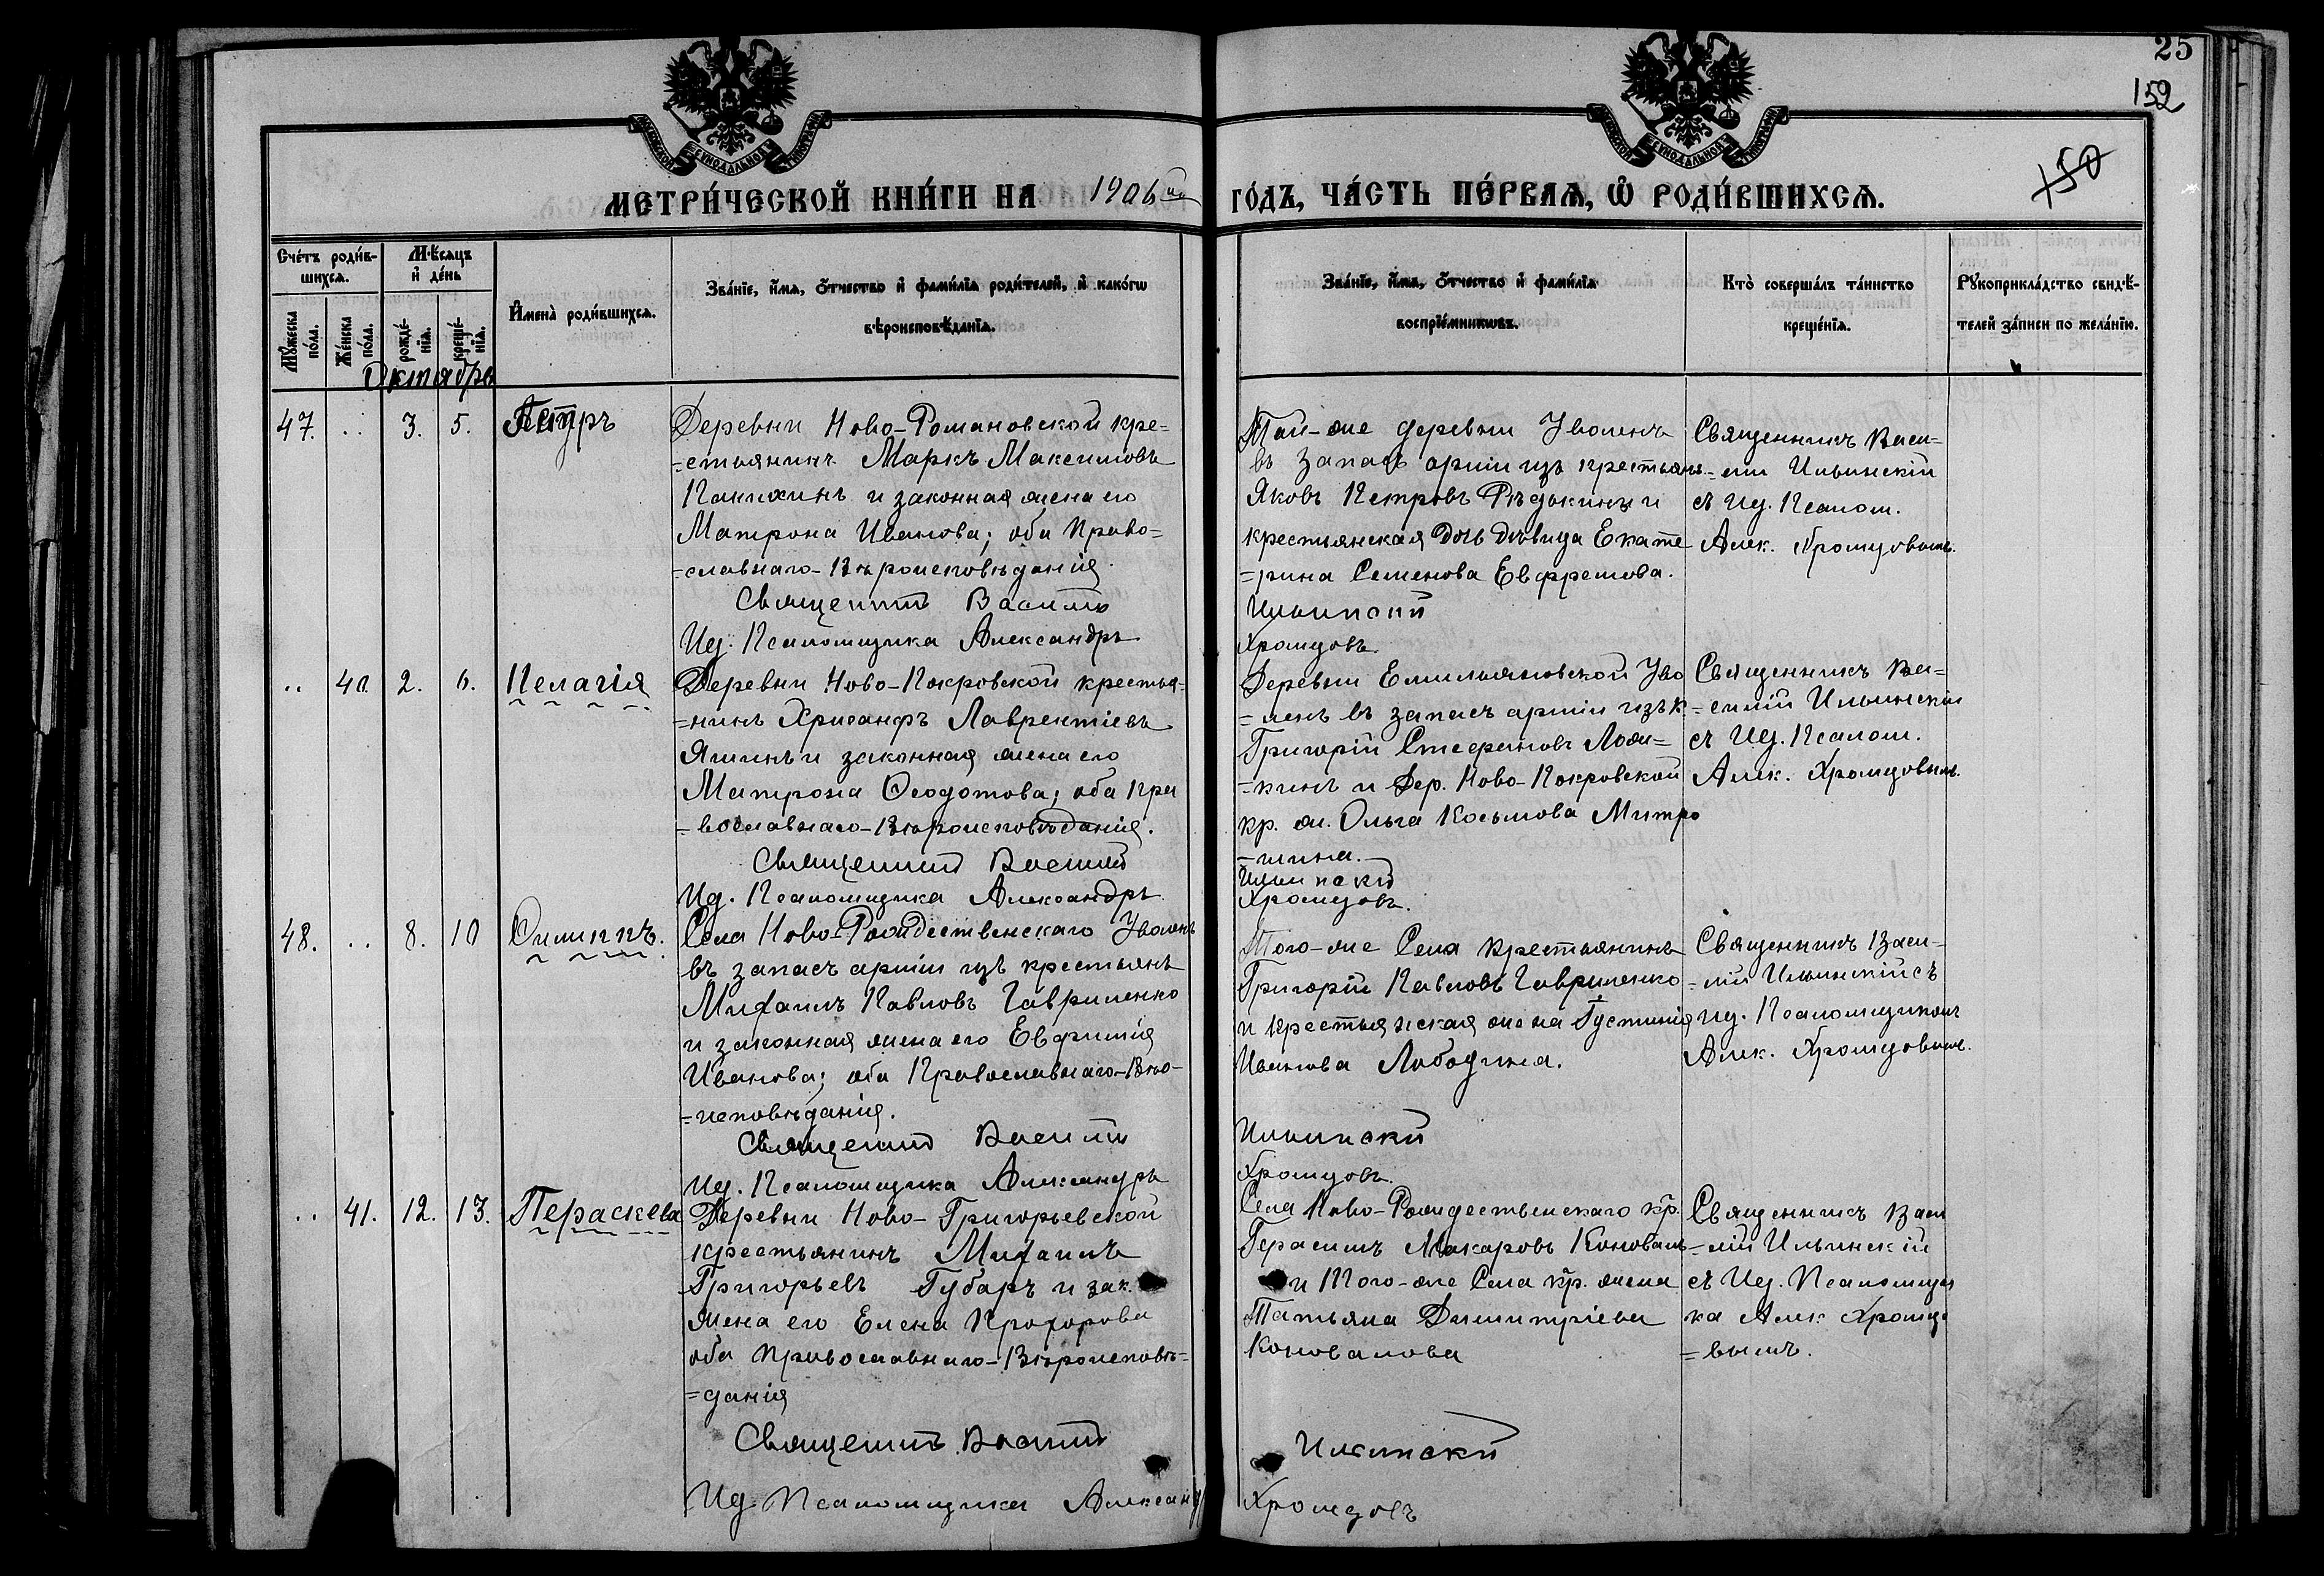 25
152
150
МОСКОВСКОЙ СѴНОДАЛЬНОЙ ТИПОГРАФІИ
МОСКОВСКОЙ СѴНОДАЛЬНОЙ ТИПОГРАФІИ
МЕТРИ́ЧЕСКОЙ КНИ́ГИ НА 1906ый ГО́ДЪ, ЧА́СТЬ ПЕ́РВАѦ, Ѡ҆ РОДИ́ВШИХСѦ.
Сче́тъ роди́в-
шихсѧ.
Мꙋ́жеска по́ла.
Же́нска по́ла.
Мѣ́сѧцъ
и҆ де́нь
рожде́-
нїѧ.
креще́-
нїѧ.
И҆мена̀ роди́вшихсѧ.
Зва́нїе, и҆́мѧ, ѻ҆́тчество и҆ фами́лїѧ роди́телей, и҆ како́гѡ
вѣроисповѣ́данїѧ.
Зва́нїе, и҆́мѧ, ѻ҆́тчество и҆ фами́лїѧ
воспрїе́мникѡвъ.
Кто̀ соверша́лъ та́инство
креще́нїѧ.
Рꙋкоприкла́дство свидѣ́-
телей за́писи по жела́нїю.
Октябрь
47. .. 3. 5. Петръ
Деревни Ново-Романовской кре=
=стьянинъ Маркъ Максимовъ
Паникинъ и законная жена его
Матрона Иванова; оба Право=
=славнаго-Вѣроисповѣданія.
Священникъ Василій
Ид. Псаломщика Александръ
Той-же деревни Уволенъ
въ запасъ арміи изъ крестьянъ
Яковъ Петровъ Рѣдькинъ и
крестьянская дочь дѣвица Екате
=рина Семенова Евфремова.
Ильинскій
Хромцовъ.
Священникъ Васи=
=лій Ильинскій
съ Ид. Псалом.
Алек. Хромцовымъ.
.. 40. 2. 6. Пелагія
Деревни Ново-Покровской крестья=
=нинъ Хрисанфъ Лаврентіевъ
Яшинъ и законная жена его
Матрона Ѳеодотова; оба Пра
=вославнаго-Вѣроисповѣданія.
Священникъ Василій
Ид. Псаломщика Александръ
Деревни Емильяновской Уво
=ленъ въ запасъ арміи изъ к.
Григорій Стефановъ
=кинъ и Дер. Ново-Покровской
кр. ж. Ольга Косьмова Митро
=шина.
Ильинскій
Хромцовъ.
Священникъ Ва=
=силій Ильинскій
съ Ид. Псалом.
Алек. Хромцовымъ.
48. .. 8. 10 Филиппъ.
Села Ново-Рождественскаго Уволенъ
въ запасъ арміи изъ крестьянъ
Михаилъ Павловъ Гавриленко
и законная жена его Евфимія
Иванова; оба Православнаго-Вѣро-
=исповѣданія.
Священникъ Василій
Ид. Псаломщика Александръ
Того-же Села крестьянинъ
Григорій Павловъ Гавриленко
и крестьянская жена Густинія
Иванова Лободина.
Ильинскій
Хромцовъ.
Священникъ Васи-
=лій Ильинскій съ
Ид. Псаломщикомъ
Алек. Хромцовымъ.
.. 41. 12. 13. Параскева
Деревни Ново-Григорьевской
крестьянинъ Михаилъ
Григорьевъ Губарь и зак.
жена его Елена Прохорова
оба православнаго-Вѣроисповѣ=
=данія
Священникъ Василій
Ид Псаломщика Александръ
Села Ново-Рождественскаго кр.
Герасимъ Макаровъ Коноваль
и Того-же Села кр. жена
Татьяна Димитріева
Коновалова
Ильинскій
Хромцовъ
Священникъ Васи
=лій Ильинскій
съ Ид. Псаломщи
ка Алек Хромцо
=вымъ.